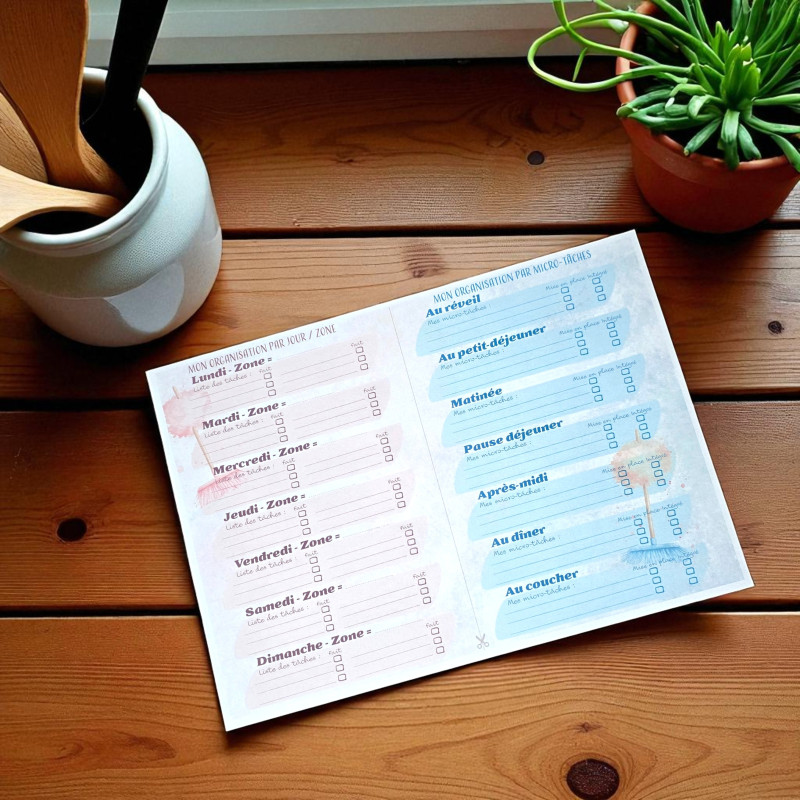 MON ORGANISATION PAR JOUR / ZONE
Lundi - Zone =
Liste des tâches : Fait Fait
Mardi - Zone =
Liste des tâches : Fait Fait
Mercredi - Zone =
Liste des tâches : Fait Fait
Jeudi - Zone =
Liste des tâches : Fait Fait
Vendredi - Zone =
Liste des tâches : Fait Fait
Samedi - Zone =
Liste des tâches : Fait Fait
Dimanche - Zone =
Liste des tâches : Fait Fait
MON ORGANISATION PAR MICRO-TÂCHES
Au réveil
Mes micro-tâches : Mise en place Intégré
Au petit-déjeuner
Mes micro-tâches : Mise en place Intégré
Matinée
Mes micro-tâches : Mise en place Intégré
Pause déjeuner
Mes micro-tâches : Mise en place Intégré
Après-midi
Mes micro-tâches : Mise en place Intégré
Au dîner
Mes micro-tâches : Mise en place Intégré
Au coucher
Mes micro-tâches : Mise en place Intégré